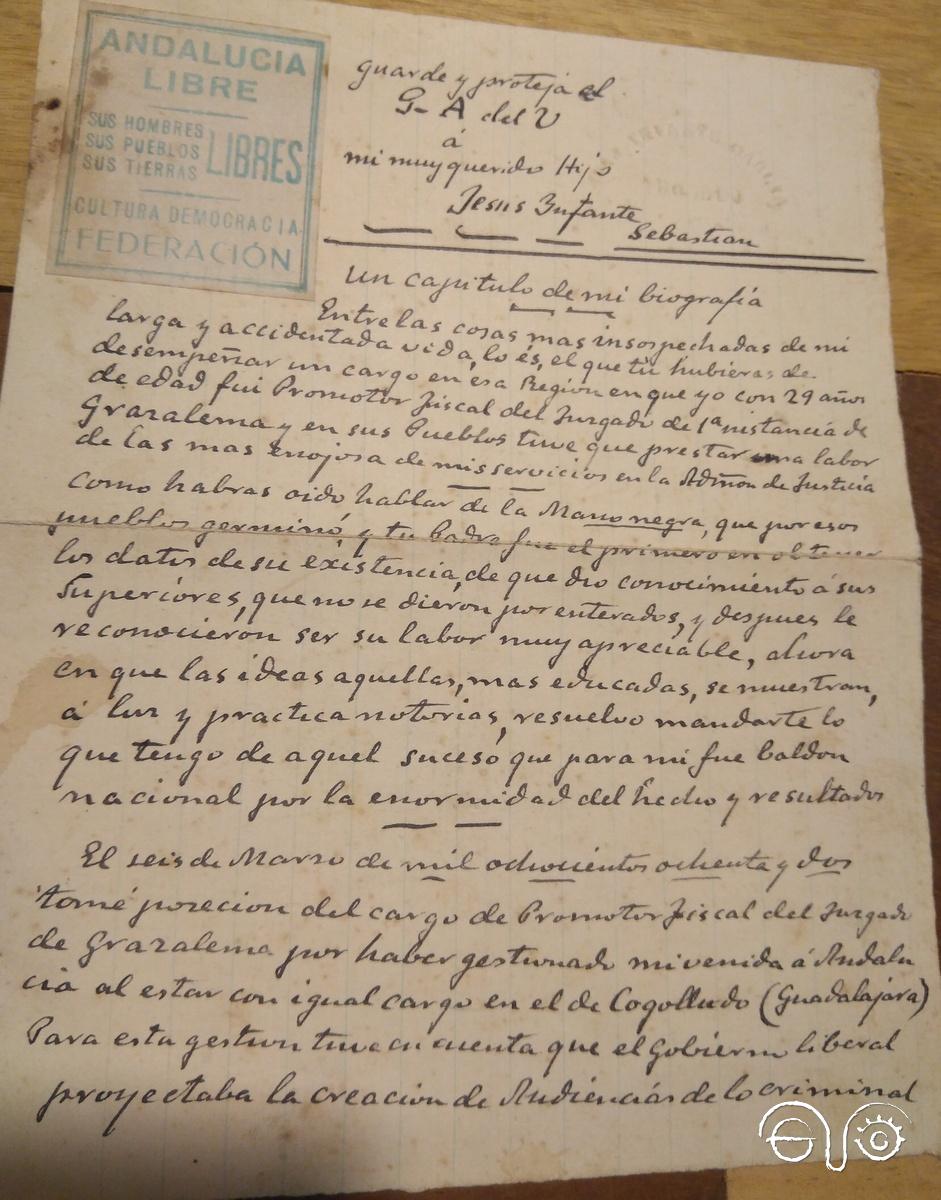 ANDALUCIA
LIBRE
SUS HOMBRES
SUS PUEBLOS
SUS TIERRAS
LIBRES
CULTURA DEMOCRACIA
FEDERACIÓN
guarde y proteja el
G- A del U
á
mi muy querido Hijo
Jesus Infante
Sebastian
Un capitulo de mi biografía
Entre las cosas mas insospechadas de mi
larga y accidentada vida, lo és, el que tú hubieras de
desempeñar un cargo en esa Región en que yo con 29 años
de edad fui Promotor fiscal del Juzgado de 1ª instancia de
Grazalema y en sus Pueblos tuve que prestar una labor
de las mas enojosa de mis servicios en la Admón de Justicia
como habras oido hablar de la Mano negra, que por esos
pueblos germinó, y tu Padre fue el primero en obtener
los datos de su existencia, de que dio conocimiento á sus
Superiores, que no se dieron por enterados, y despues le
reconocieron ser su labor muy apreciable, ahora
en que las ideas aquellas, mas educadas, se muestran,
á luz y practica notorias, resuelvo mandarte lo
que tengo de aquel suceso que para mi fue baldon
nacional por la enormidad del hecho y resultados
El seis de Marzo de mil ochocientos ochenta y dos
tomé posecion del cargo de Promotor fiscal del Juzgado
de Grazalema por haber gestionado mi venida á Andalu
cia al estar con igual cargo en el de Cogolludo (Guadalajara)
Para esta gestion tuve en cuenta que el Gobierno liberal
proyectaba la creacion de Audiencias de lo criminal